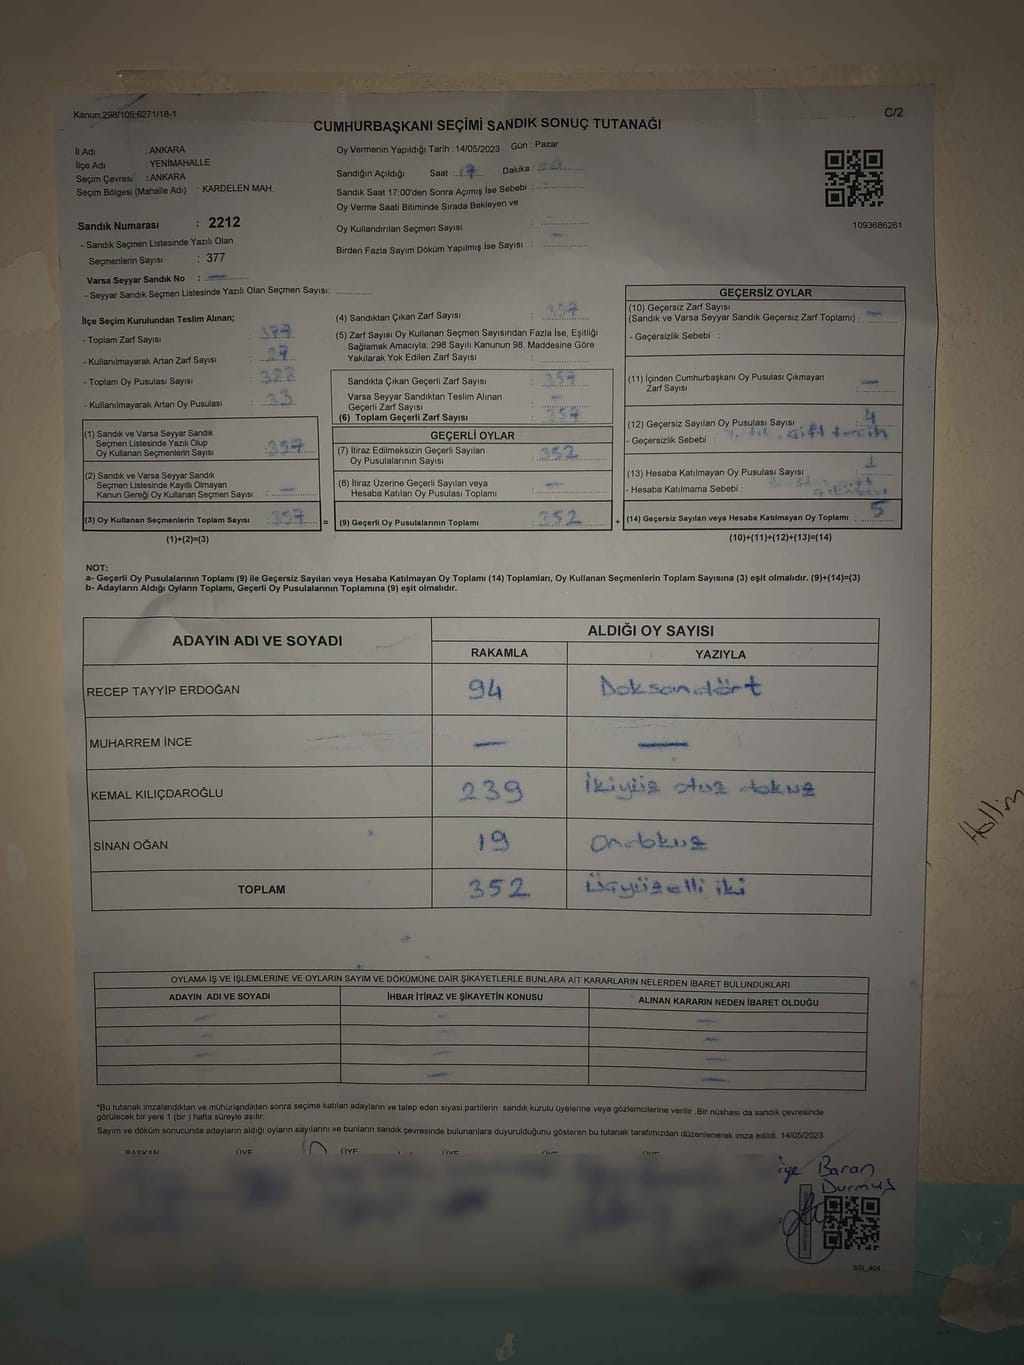 Kanun;298/105;6271/18-1
C/2
CUMHURBAŞKANI SEÇİMİ SANDIK SONUÇ TUTANAĞI
İl Adı : ANKARA
İlçe Adı : YENİMAHALLE
Seçim Çevresi : ANKARA
Seçim Bölgesi (Mahalle Adı) : KARDELEN MAH.
Sandık Numarası : 2212
- Sandık Seçmen Listesinde Yazılı Olan
Seçmenlerin Sayısı : 377
Varsa Seyyar Sandık No : —
- Seyyar Sandık Seçmen Listesinde Yazılı Olan Seçmen Sayısı:
Oy Vermenin Yapıldığı Tarih :14/05/2023 Gün : Pazar
Sandığın Açıldığı Saat : 17 Dakika :
Sandık Saat 17:00'den Sonra Açımış İse Sebebi :
Oy Verme Saati Bitiminde Sırada Bekleyen ve
Oy Kullandırılan Seçmen Sayısı :
Birden Fazla Sayım Döküm Yapılmış İse Sayısı : —
1093686261
İlçe Seçim Kurulundan Teslim Alınan;
- Toplam Zarf Sayısı :
- Kullanılmayarak Artan Zarf Sayısı : 27
- Toplam Oy Pusulası Sayısı :
- Kullanılmayarak Artan Oy Pusulası : 33
(1) Sandık ve Varsa Seyyar Sandık
Seçmen Listesinde Yazılı Olup
Oy Kullanan Seçmenlerin Sayısı : 357
(2) Sandık ve Varsa Seyyar Sandık
Seçmen Listesinde Kayıtlı Olmayan
Kanun Gereği Oy Kullanan Seçmen Sayısı : —
(3) Oy Kullanan Seçmenlerin Toplam Sayısı : 357 =
(1)+(2)=(3)
(4) Sandıktan Çıkan Zarf Sayısı : 357
(5) Zarf Sayısı Oy Kullanan Seçmen Sayısından Fazla İse, Eşitliği
Sağlamak Amacıyla; 298 Sayılı Kanunun 98. Maddesine Göre
Yakılarak Yok Edilen Zarf Sayısı :
Sandıkta Çıkan Geçerli Zarf Sayısı : 357
Varsa Seyyar Sandıktan Teslim Alınan
Geçerli Zarf Sayısı : —
(6) Toplam Geçerli Zarf Sayısı : 357
GEÇERLİ OYLAR
(7) İtiraz Edilmeksizin Geçerli Sayılan
Oy Pusulalarının Sayısı : 352
(8) İtiraz Üzerine Geçerli Sayılan veya
Hesaba Katılan Oy Pusulası Toplamı : —
(9) Geçerli Oy Pusulalarının Toplamı : 352 +
GEÇERSİZ OYLAR
(10) Geçersiz Zarf Sayısı
(Sandık ve Varsa Seyyar Sandık Geçersiz Zarf Toplamı) : —
- Geçersizlik Sebebi :
(11) İçinden Cumhurbaşkanı Oy Pusulası Çıkmayan
Zarf Sayısı : —
(12) Geçersiz Sayılan Oy Pusulası Sayısı : 4
- Geçersizlik Sebebi : çift tercih
(13) Hesaba Katılmayan Oy Pusulası Sayısı : 1
- Hesaba Katılmama Sebebi :
(14) Geçersiz Sayılan veya Hesaba Katılmayan Oy Toplamı : 5
(10)+(11)+(12)+(13)=(14)
NOT:
a- Geçerli Oy Pusulalarının Toplamı (9) ile Geçersiz Sayılan veya Hesaba Katılmayan Oy Toplamı (14) Toplamları, Oy Kullanan Seçmenlerin Toplam Sayısına (3) eşit olmalıdır. (9)+(14)=(3)
b- Adayların Aldığı Oyların Toplamı, Geçerli Oy Pusulalarının Toplamına (9) eşit olmalıdır.
ADAYIN ADI VE SOYADI ALDIĞI OY SAYISI
RAKAMLA YAZIYLA
RECEP TAYYİP ERDOĞAN 94 Doksandört
MUHARREM İNCE — —
KEMAL KILIÇDAROĞLU 239 İkiyüz otuz dokuz
SİNAN OĞAN 19 Ondokuz
TOPLAM 352 Üçyüzelli iki
OYLAMA İŞ VE İŞLEMLERİNE VE OYLARIN SAYIM VE DÖKÜMÜNE DAİR ŞİKAYETLERLE BUNLARA AİT KARARLARIN NELERDEN İBARET BULUNDUKLARI
ADAYIN ADI VE SOYADI İHBAR İTİRAZ VE ŞİKAYETİN KONUSU ALINAN KARARIN NEDEN İBARET OLDUĞU
*Bu tutanak imzalandıktan ve mühürlendikten sonra seçime katılan adayların ve talep eden siyasi partilerin sandık kurulu üyelerine veya gözlemcilerine verilir. Bir nüshası da sandık çevresinde
görülecek bir yere 1 (bir ) hafta süreyle asılır.
Sayım ve döküm sonucunda adayların aldığı oyların sayılarını ve bunların sandık çevresinde bulunanlara duyurulduğunu gösteren bu tutanak tarafımızdan düzenlenerek imza edildi. 14/05/2023
BAŞKAN ÜYE ÜYE ÜYE ÜYE ÜYE
Baran
Durmuş
SSI_404